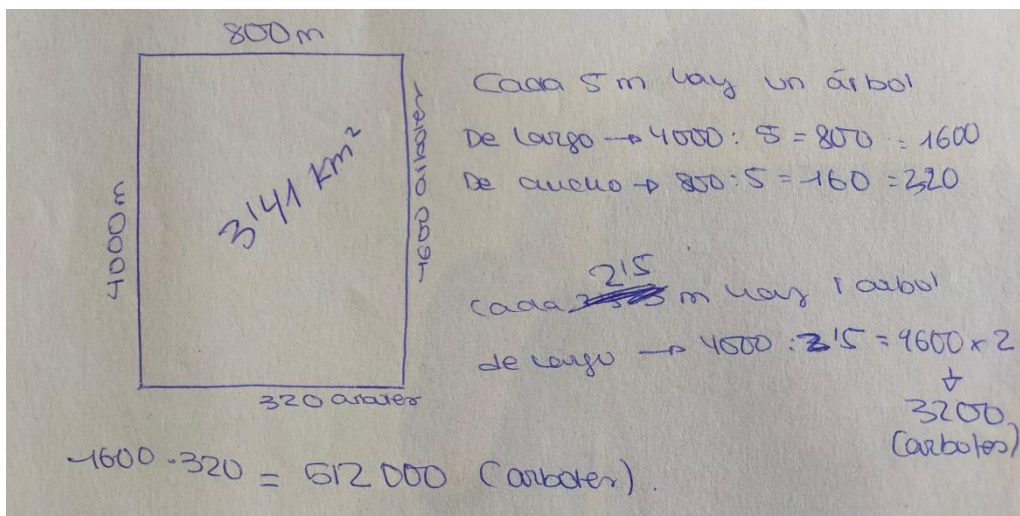 800m
4000m
3'41 km²
1600 arboles
320 arboles
Cada 5 m hay un árbol
De largo → 4000 : 5 = 800 = 1600
De ancho → 800 : 5 = 160 = 320
2'5
cada m hay 1 arbol
de largo → 4000 : 2'5 = 1600 x 2
↓
3200
(arboles)
1600 · 320 = 512 000 (arboles).